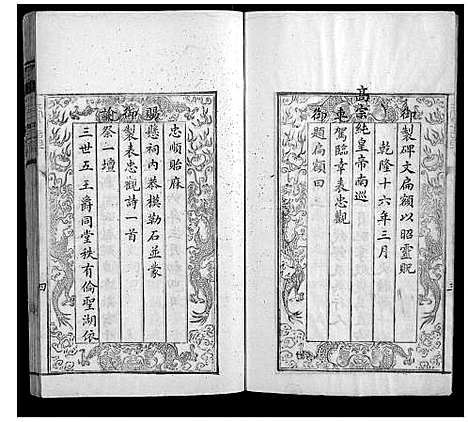 御製碑文扁額以昭靈貺
乾隆十六年三月
高宗純皇帝南巡
車駕臨幸表忠觀
御題扁額曰
忠順貽庥
賜懸祠內恭模勒石並蒙
御製表忠觀詩一首
諭祭一壇
三世五王爵同堂秩有倫聖湖依
三
四